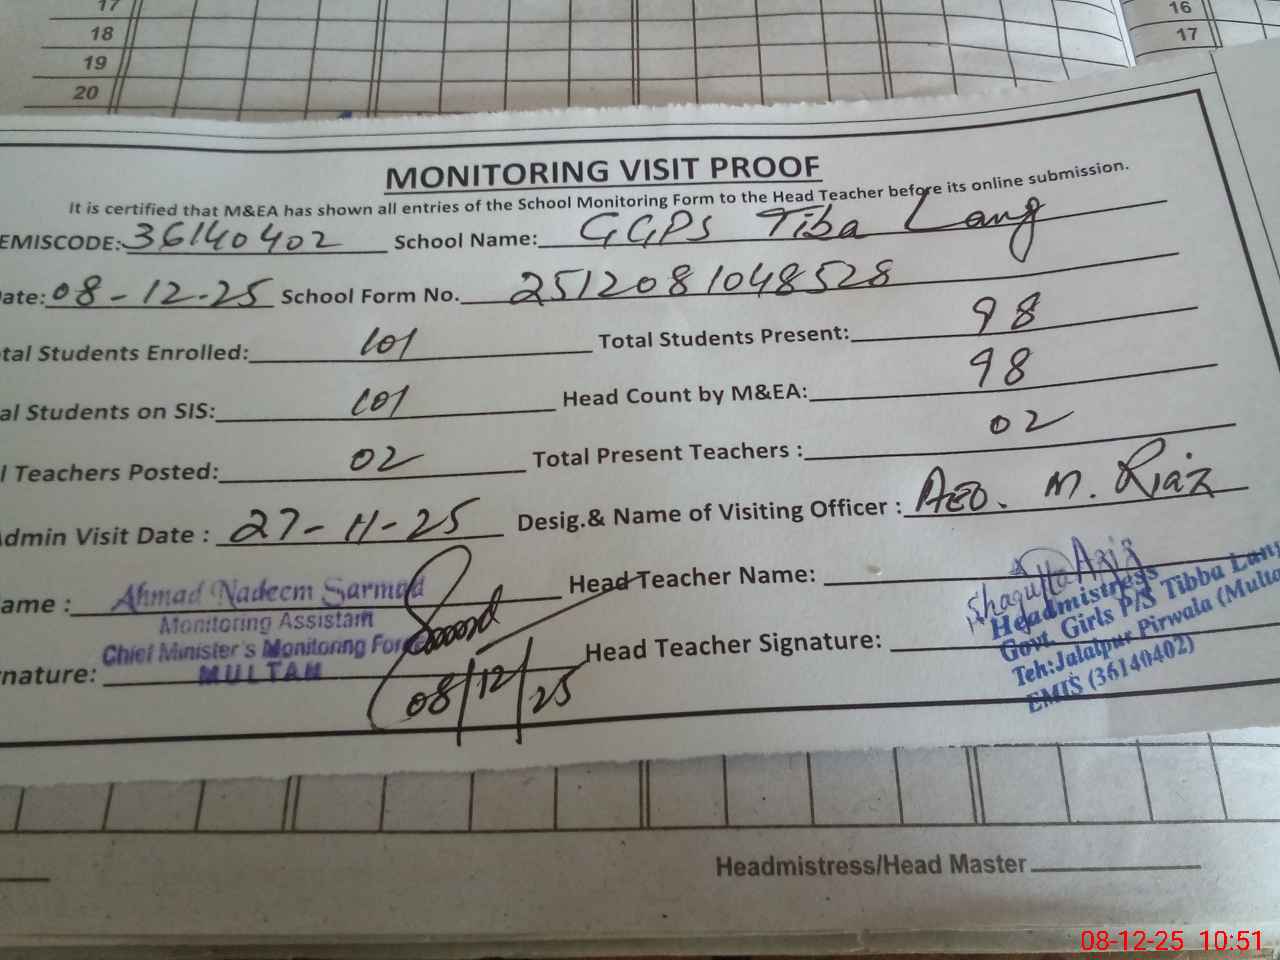 17
18
19
20
16
17
MONITORING VISIT PROOF
It is certified that M&EA has shown all entries of the School Monitoring Form to the Head Teacher before its online submission.
EMISCODE: 36140402 School Name: GGPS Tiba Lang
ate: 08-12-25 School Form No. 2512081048528
tal Students Enrolled: 101 Total Students Present: 98
al Students on SIS: 101 Head Count by M&EA: 98
l Teachers Posted: 02 Total Present Teachers : 02
dmin Visit Date : 27-11-25 Desig.& Name of Visiting Officer : AEO. M. Riaz
ame : Ahmad Nadeem Sarmad Head Teacher Name: Shagufta Aziz
Monitoring Assistant
Chief Minister's Monitoring For
MULTAN
nature: Head Teacher Signature:
08/12/25
Headmistress
Govt. Girls P/S Tibba Lan
Teh:Jalalpur Pirwala (Multa
EMIS (36140402)
Headmistress/Head Master
08-12-25 10:51